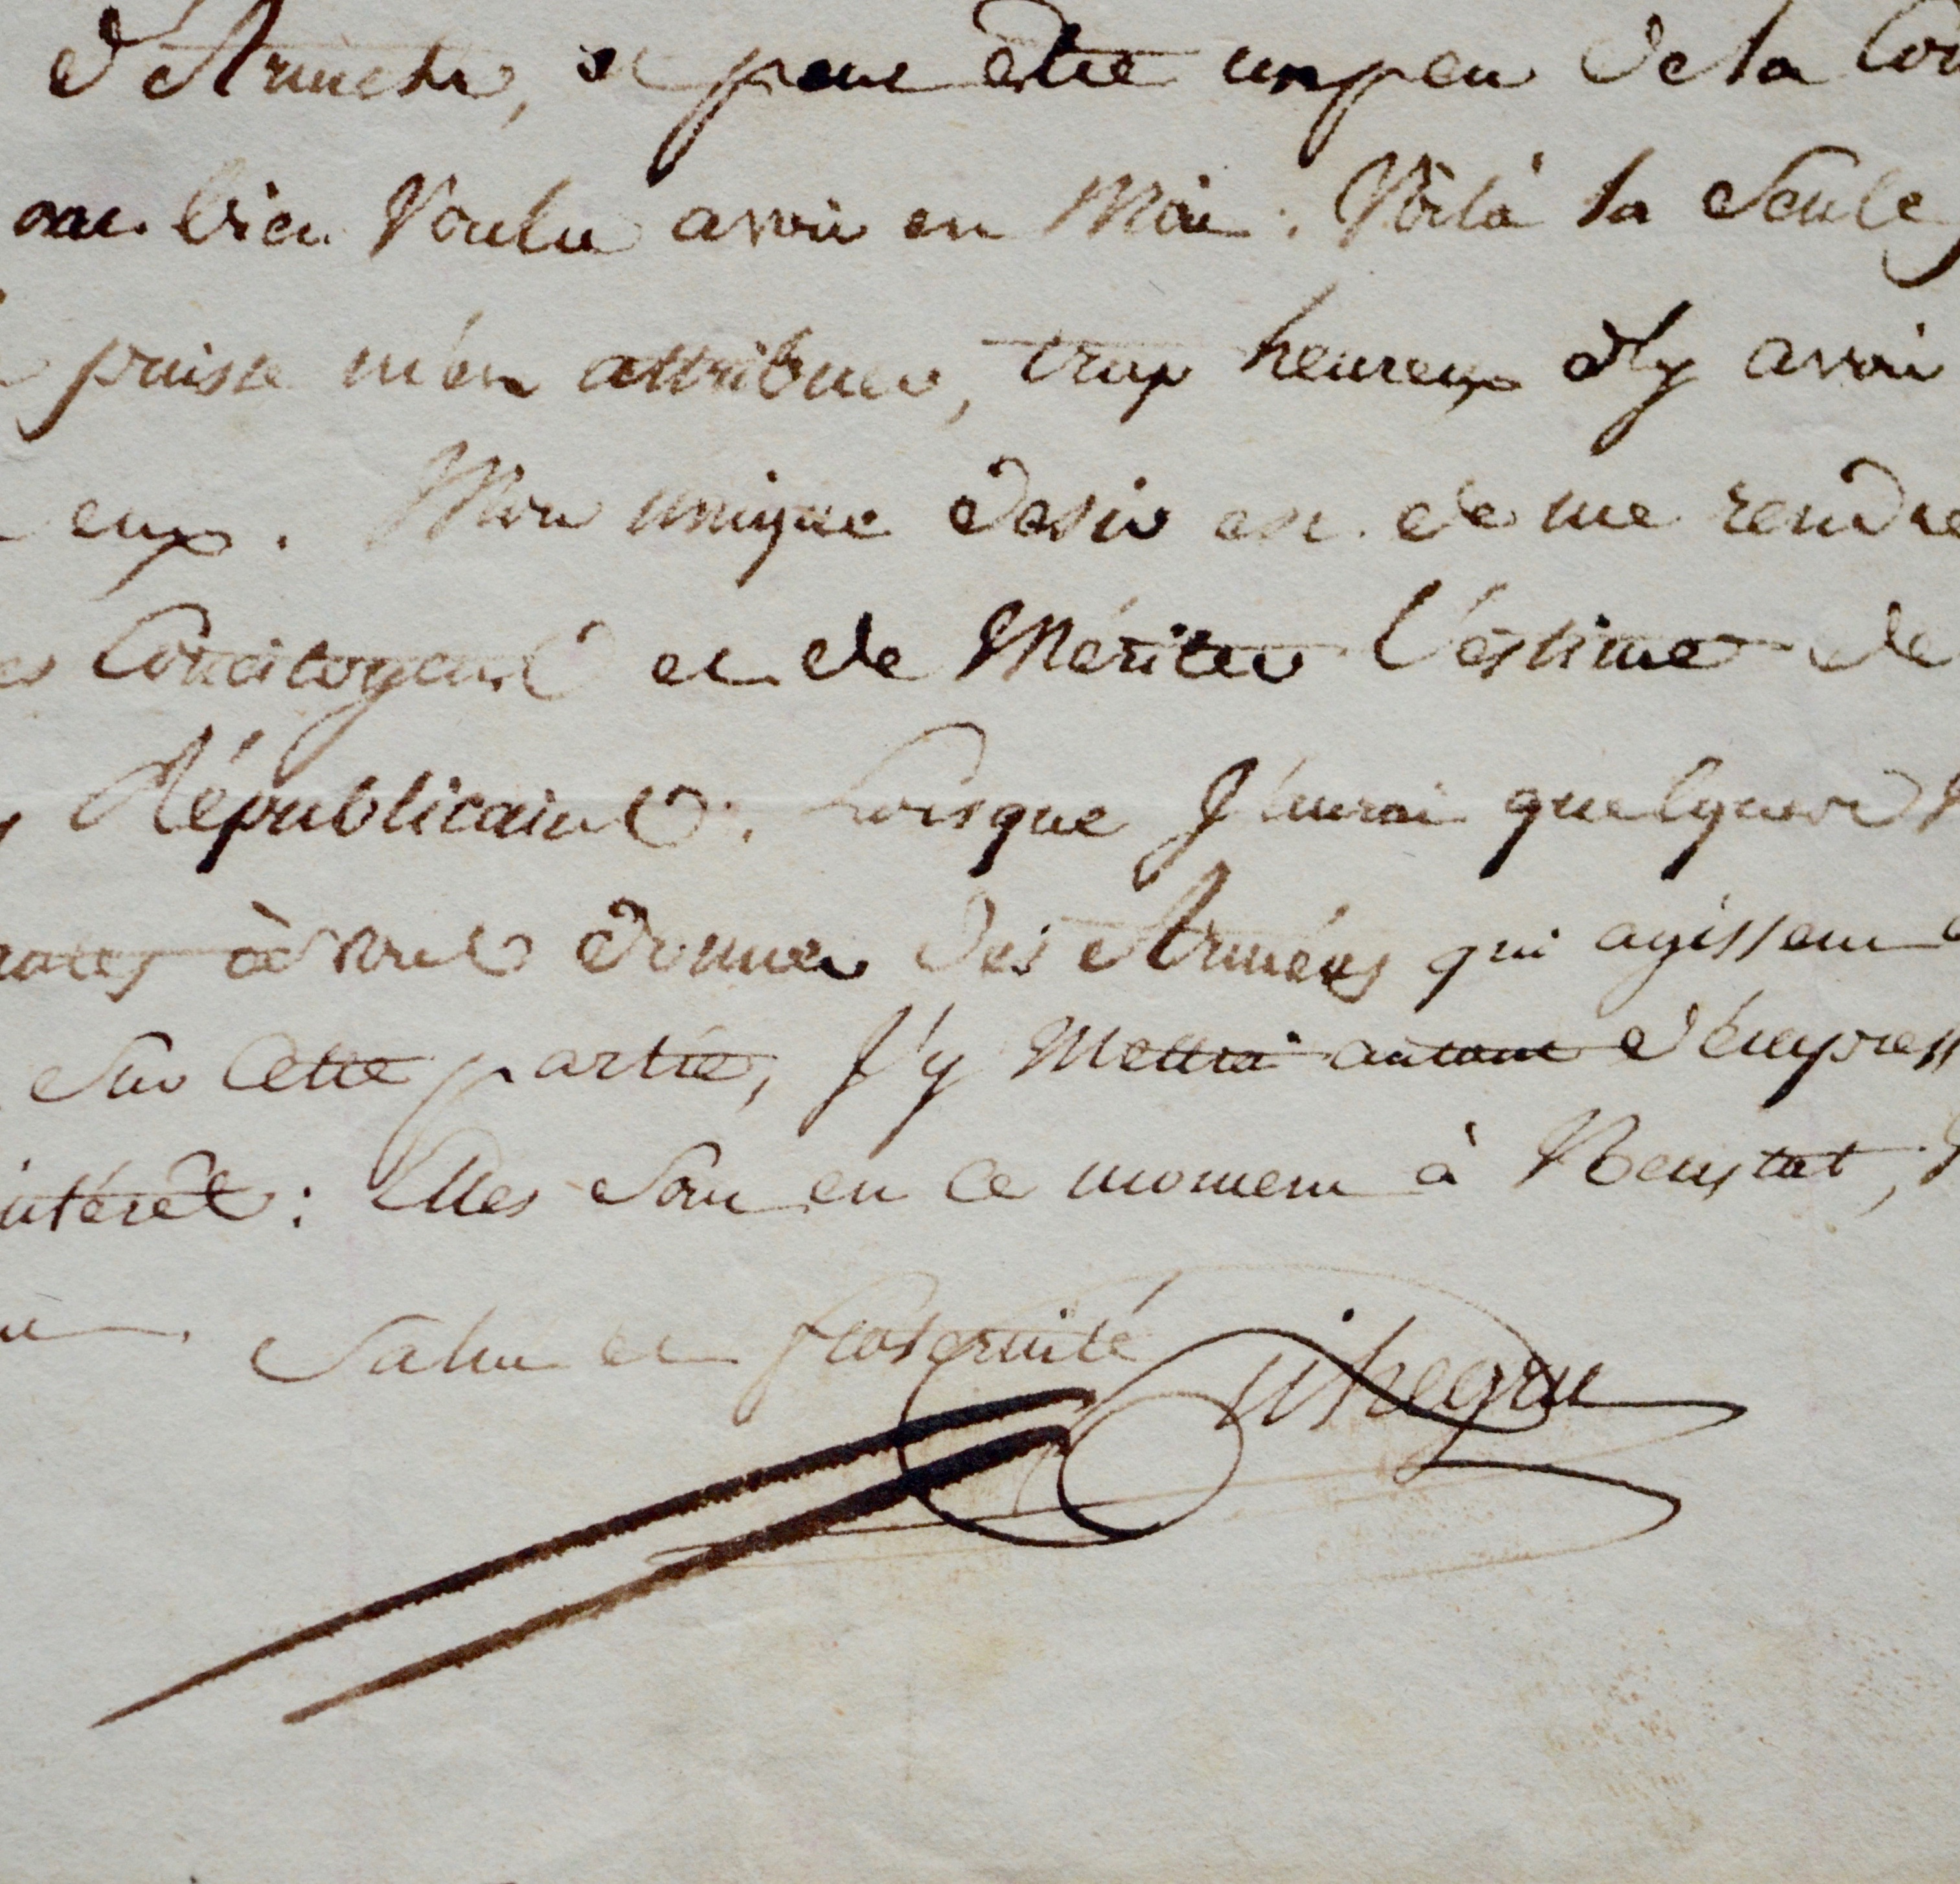 d'Armée, et peut être un peu de la
ont bien Voulu avoir en Moi. Voilà la Seule
puisse m'en attribuer, trop heureux d'y avoir
eux. Mon unique desir est de me rendre
Concitoyens et de Mériter l'estime de
Républicains. Lorsque J'aurai quelques
à vous donner des Armées qui agissent
Sur Cette partie, J'y Mettrai autant
intérêt: Elles Sont en Ce moment à Neustat,
Salut et fraternité Pichegru